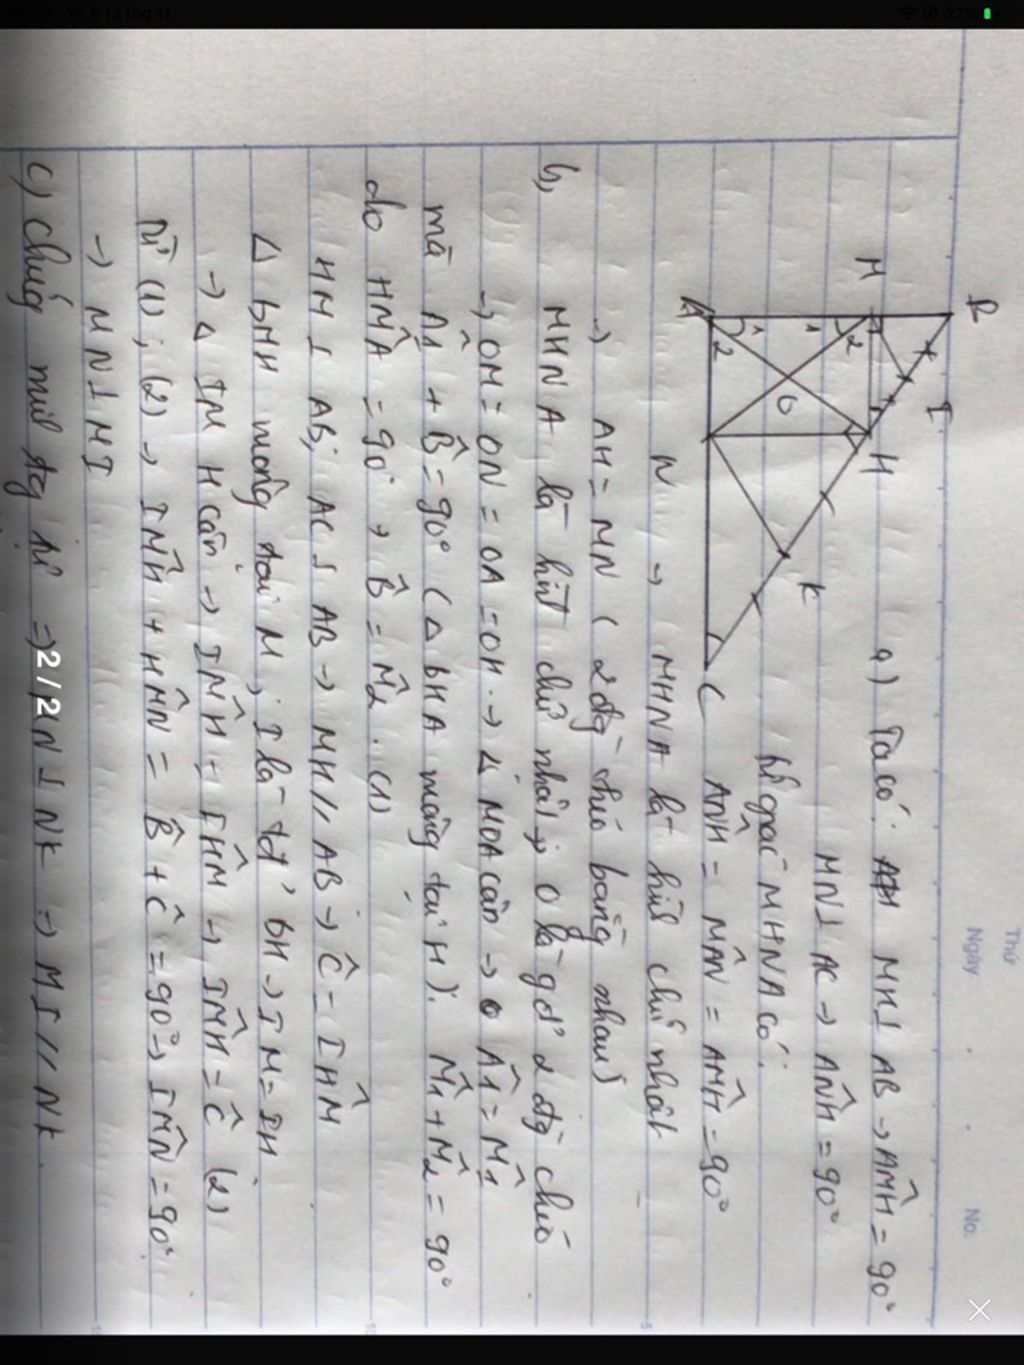 16:57 Th 5 12 thg 11
22%
Thứ
Ngày
No.
B
I
M
H
K
A
O
C
1
2
1
2
a) Ta có: MH ⊥ AB → AM̂H = 90°
MN ⊥ AC → AN̂H = 90°
tứ giác MHNA có:
AN̂H = MÂN = AM̂H = 90°
N → MHNA là hình chữ nhật
→ AH = MN ( 2 đg chéo bằng nhau)
b, MHNA là hình chữ nhật → O là gđ' 2 đg chéo
→ OM = ON = OA = OH → Δ MOA cân → Â1 = M̂1
mà Â1 + B̂ = 90° ( Δ BHA vuông tại H). M̂1 + M̂2 = 90°
do HM̂A = 90° → B̂ = M̂2. (1)
HM ⊥ AB; AC ⊥ AB → MH // AB → Ĉ = IĤM
Δ BMH vuông tại M, I là tđ' BH → IM = IH
→ Δ IMH cân → IM̂H = IĤM → IM̂H = Ĉ (2)
Từ (1); (2) → IM̂H + HM̂N = B̂ + Ĉ = 90° → IM̂N = 90°
→ MN ⊥ MI
c) chứng minh tg tự ⇒ MN ⊥ NK ⇒ MI // NK.
2 / 2